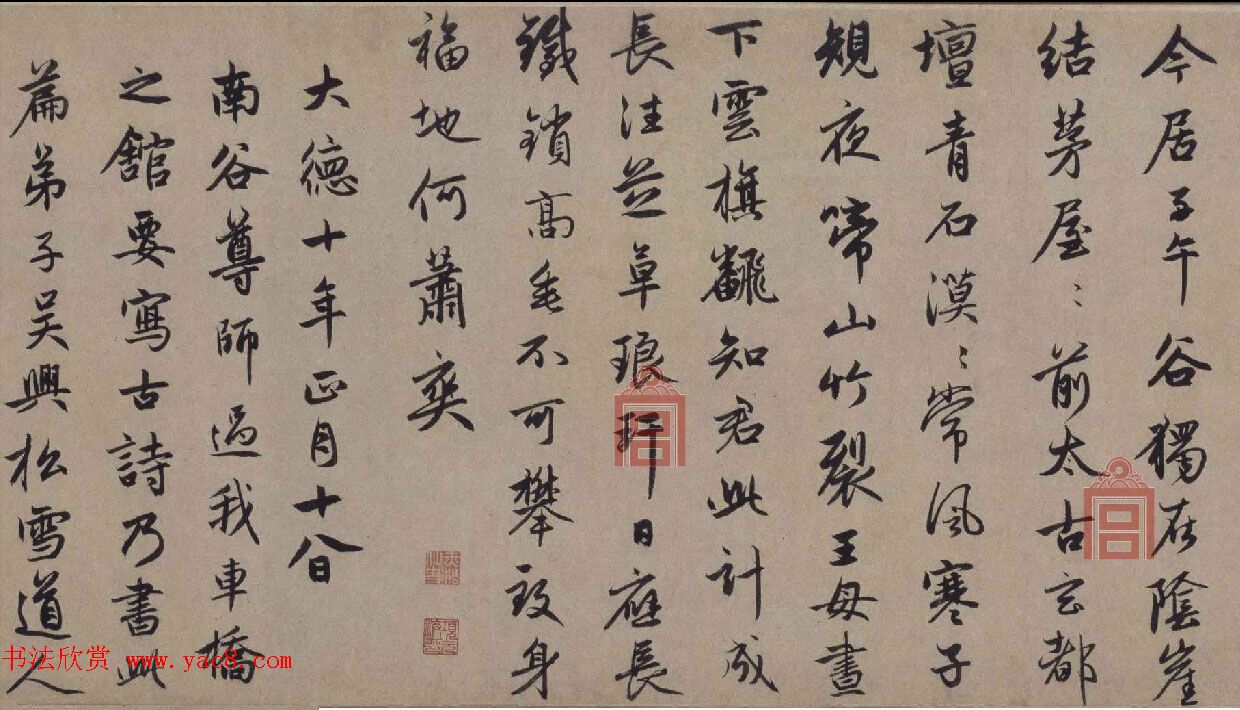 今居子午谷獨在陰崖
結茅屋〻前太古玄都
壇青石漠〻常風寒子
規夜啼山竹裂王母晝
下雲旗翻知君此計成
長往芝草琅玕日應長
鐵鎖高垂不可攀致身
福地何蕭爽
大德十年正月十八日
南谷尊師過我車橋
之館要寫古詩乃書此
篇弟子吳興松雪道人
书法欣赏 www.yac8.com